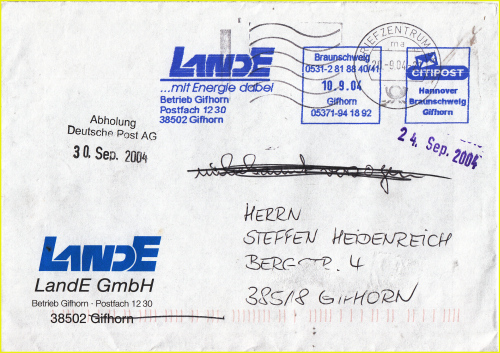 LANDE
...mit Energie dabei
Betrieb Gifhorn
Postfach 12 30
38502 Gifhorn
Braunschweig
0531-2 81 88 40/41
10.9.04
Gifhorn
05371-94 18 92
BRIEFZENTRUM
CITIPOST
Hannover
Braunschweig
Gifhorn
Abholung
Deutsche Post AG
30. Sep. 2004
24. Sep. 2004
HERRN
STEFFEN HEIDENREICH
BERGSTR. 4
38518 GIFHORN
LANDE
LandE GmbH
Betrieb Gifhorn - Postfach 12 30
38502 Gifhorn